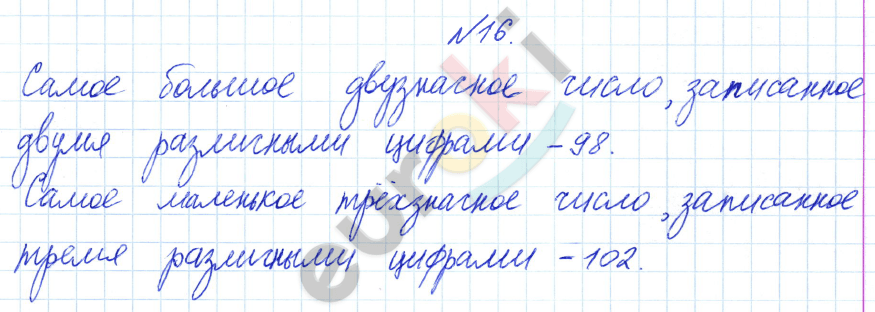 №16.
Самое большое двузначное число, записанное
двумя различными цифрами – 98.
Самое маленькое трёхзначное число, записанное
тремя различными цифрами – 102.
euroki